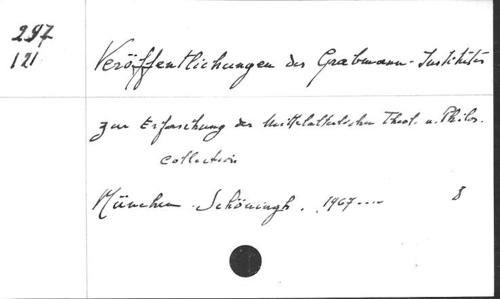 297
121
Veröffentlichungen des Grabmann-Institutes
zur Erforschung der Mittelalterlichen Theol. u. Philos.
collection
München. Schöningh. 1967....
8